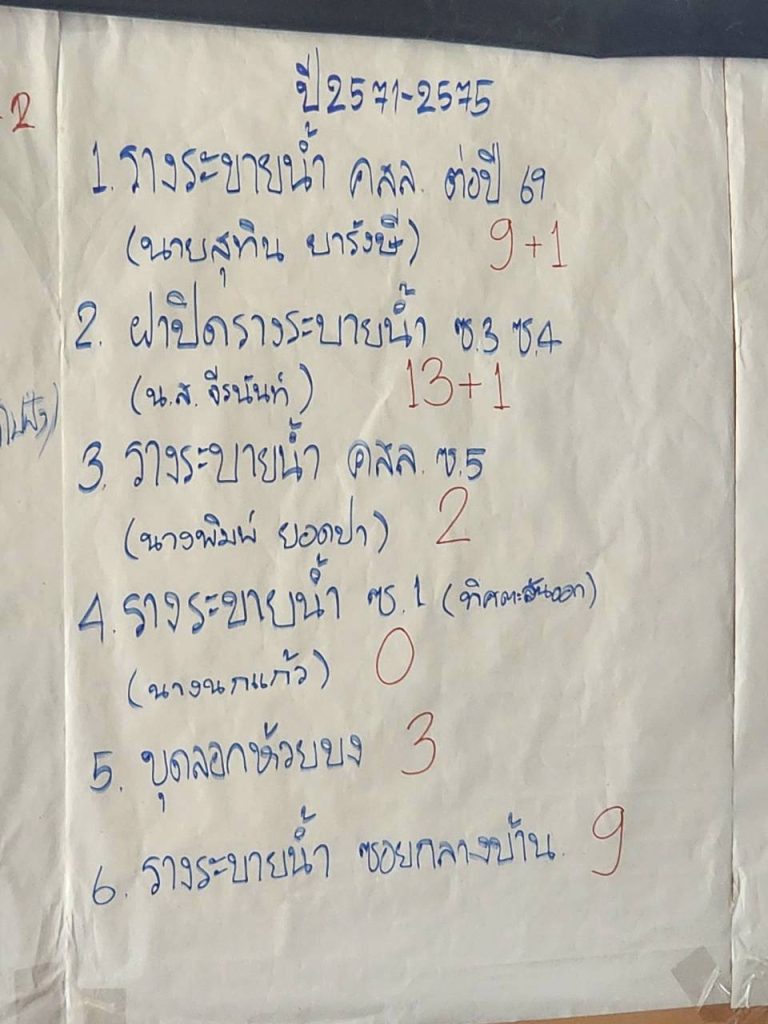 2
ปี 2571-2575
1. รางระบายน้ำ คสล. ต่อปี 69
(นายสุทิน ยารังษี) 9+1
2. ฝาปิดรางระบายน้ำ ซ.3 ซ.4
(น.ส. จีรนันท์) 13+1
3. รางระบายน้ำ คสล. ซ.5
(นางพิมพ์ ยอดปา) 2
4. รางระบายน้ำ ซ.1 (ทิศตะวันออก)
(นางนกแก้ว) 0
5. ขุดลอกห้วยบง 3
6. รางระบายน้ำ ซอยกลางบ้าน 9